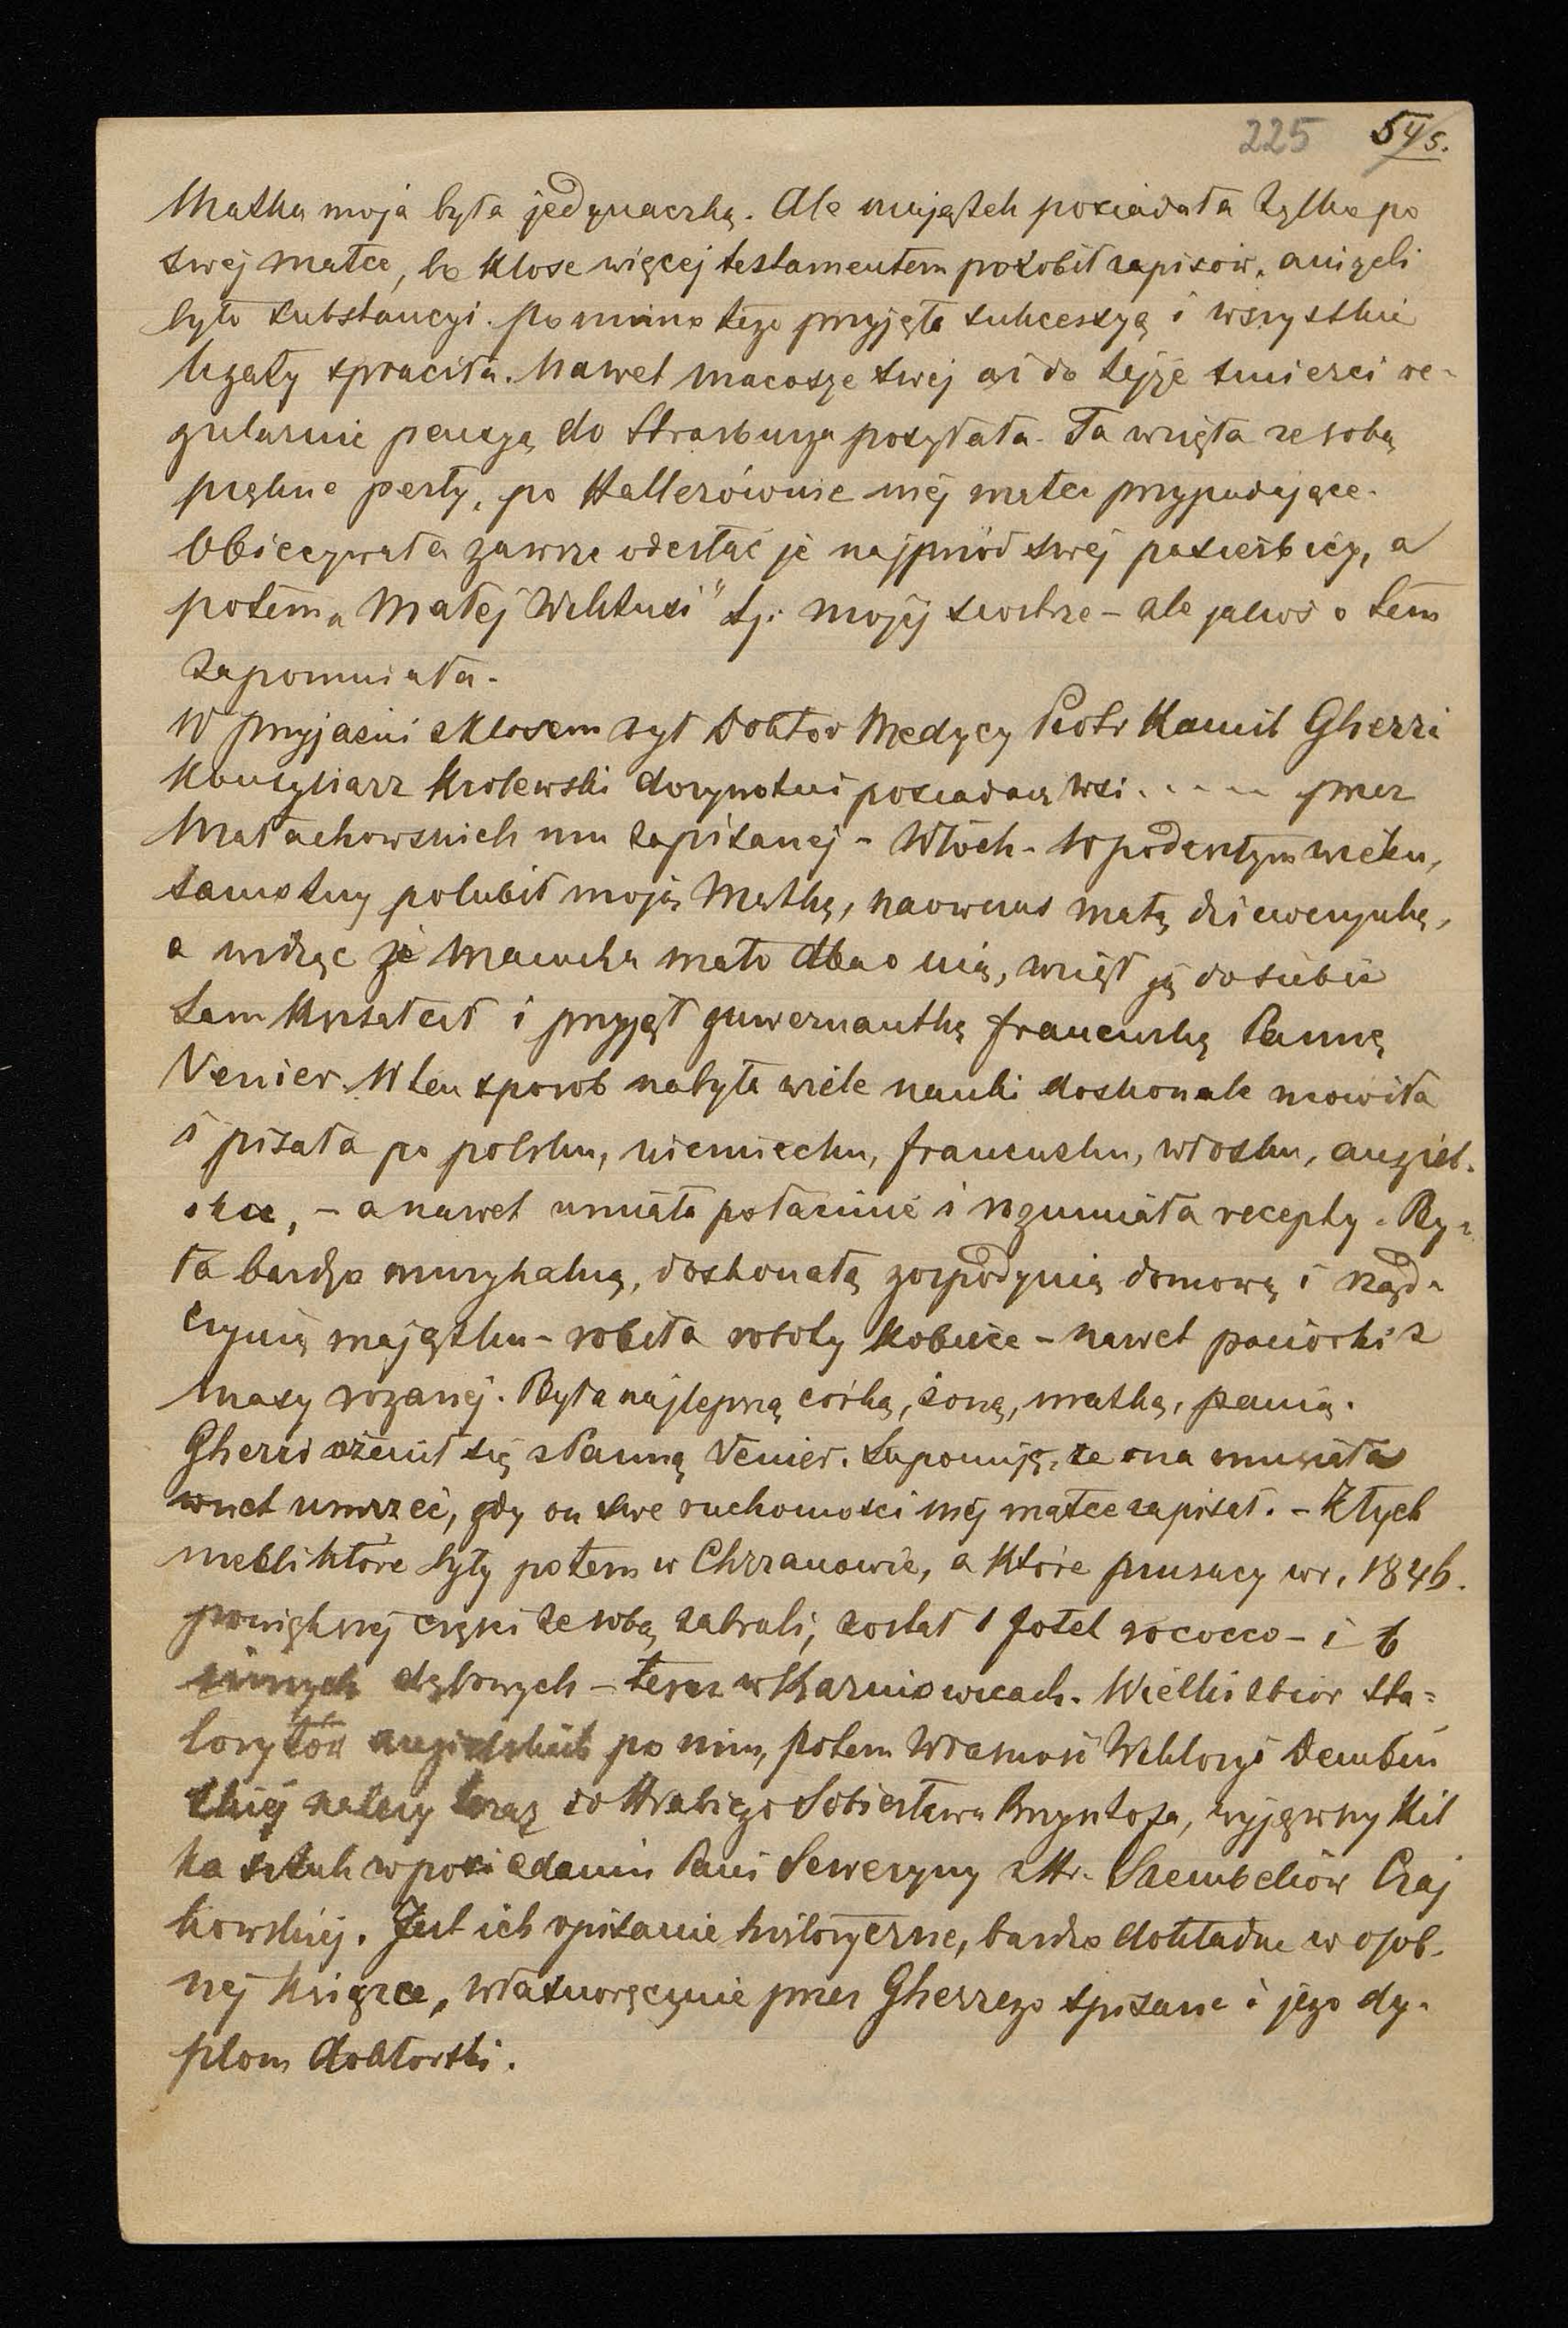 225 54/5.
Matka moja była jedynaczką. Ale majątek posiadała tylko po
swej matce, bo Klose więcej testamentem porobił zapisów, aniżeli
było substancyi. Pomimo tego przyjęła sukcessyą i wszystkie
legaty spłaciła. Nawet macosze swej aż do tejże śmierci re-
gularnie pensyą do Strasburga posyłała. Ta wzięła ze sobą
piękne perły, po Hallerównie mej matce przypadające.
Obiecywała zawsze odesłać je najprzód swej pasierbicy, a
potem „Małej Wiktusi" tj. mojej siostrze – ale jakoś o tem
zapomniała.
W przyjaźni z Klosem żył Doktor Medycy Piotr Kamil Gherri
Konsyliarz Krolewski dożywotni posiadacz wsi . . . . . przez
Małachowskich mu zapisanej – Włoch – W podeszłym wieku,
samotny polubił moją Matkę, naówczas małą dziewczynkę,
a widząc że Macocha mało dba o nią, wziął ją do siebie
sam kształcił i przyjął guwernantkę francuską Pannę
Venier. W ten sposob nabyła wiele nauki doskonale mowiła
i pisała po polsku, niemiecku, francusku, włosku, angiel-
sku, – a nawet umiała po łacinie i rozumiała recepty. By-
ła bardzo muzykalną, doskonałą gospodynią domową i rząd-
czynią majątku – robiła roboty kobiece – nawet paciorki z
masy rożanej. Była najlepszą córką, żoną, matką, panią.
Gherri ożenił się z Panną Venier. Suponuję, że ona musiała
wnet umrzeć, gdy on swe ruchomości mej matce zapisał. – Z tych
mebli które były potem w Chrzanowie, a które prusacy w r. 1846.
powiększej części ze sobą zabrali, został 1 fotel rococco – i 6
innych dębowych – teraz w Karniowicach. Wielki zbiór sta-
lorytów angielskich po nim, potem własność Wiktoryi Dembiń
skiej należy teraz do Hrabiego Sobiesława Mieroszowskiego, wyjąwszy kil
ka sztuk w posiadaniu Pani Seweryny z Hr. Szembeków Czaj
kowskiej. Jest ich opisanie historyczne, bardzo dokładne w osob-
nej książce, własnoręcznie przez Gherrego spisane i jego dy-
plom doktorski.